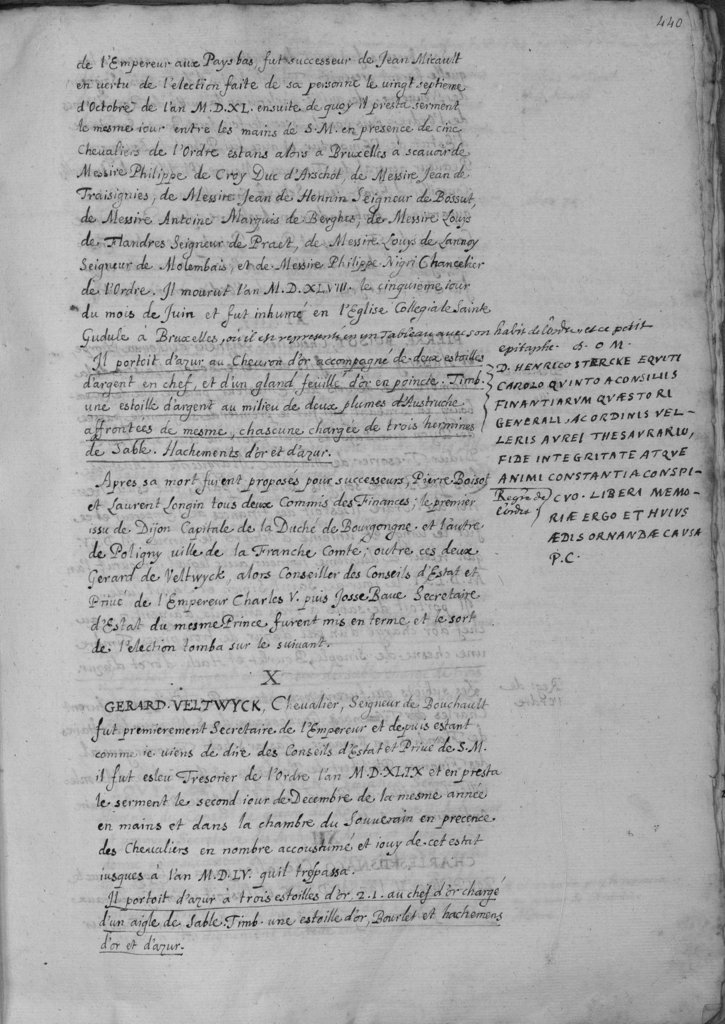 440
de l'Empereur aux Paysbas, fut successeur de Jean Micault
en vertu de l'election faite de sa personne le vingt septieme
d'Octobre de l'an M.D.XL. ensuite de quoy il presta serment
le mesme iour entre les mains de S.M. en presence de cinc
Chevaliers de l'Ordre estans alors à Bruxelles à scavoir de
Messire Philippe de Croy Duc d'Arschot, de Messire Jean de
Traisignies, de Messire Jean de Hennin Seigneur de Bossut,
de Messire Antoine Marquis de Berghes, de Messire Louys
de Flandres Seigneur de Praet, de Messire Louys de Lannoy
Seigneur de Molembais, et de Messire Philippe Nigri Chancelier
de l'Ordre. Il mourut l'an M.D.XLVIII. le cinquieme iour
du mois de Juin et fut inhumé en l'Eglise Collegiale Sainte
Gudule à Bruxelles, où il est representé en un Tableau avec son habit de l'ordre, et ce petit
epitaphe. D. O. M.
D. HENRICO STERCKE EQVITI
CAROLO QVINTO A CONSILIIS
FINANTIARVM QVÆSTORI
GENERALI, AC ORDINIS VEL-
LERIS AVREI THESAVRARIO,
FIDE INTEGRITATE ATQVE
ANIMI CONSTANTIA CONSPI-
CVO. LIBERI MEMO-
RIÆ ERGO ET HVIVS
ÆDIS ORNANDÆ CAVSA
P.C.
Il portoit d'azur au Chevron d'or accompagné de deux estoilles
d'argent en chef, et d'un gland feuillé d'or en poincte. Timb.
une estoille d'argent au milieu de deux plumes d'Austruche
affrontees de mesme, chascune chargée de trois hermines
de Sable. Hachements d'or et d'azur.
Apres sa mort furent proposés pour successeurs, Pierre Boisot
et Laurent Longin tous deux Commis des Finances; le premier
issu de Dijon Capitale de la Duché de Bourgongne et l'autre
de Poligny ville de la Franche Comté; outre ces deux
Gerard de Veltwyck, alors Conseiller des Conseils d'Estat et
Privé de l'Empereur Charles V. puis Josse Bave Secretaire
d'Estat du mesme Prince furent mis en terme, et le sort
de l'election tomba sur le suivant.
Regre de
l'ordre
X
GERARD. VELTWYCK, Chevalier, Seigneur de Bouchault
fut premierement Secretaire de l'Empereur et depuis estant
comme ie viens de dire des Conseils d'Estat et Privé de S.M.
il fut esleu Tresorier de l'Ordre l'an M.D.XLIX et en presta
le serment le second iour de Decembre de la mesme année
en mains et dans la chambre du Souverain en precence
des Chevaliers en nombre accoustumé et iouy de cet estat
iusques à l'an M.D.LV. qu'il trespassa.
Il portoit d'azur à trois estoilles d'or 2.1. au chef d'or chargé
d'un aigle de Sable. Timb. une estoille d'or, Bourlet et hachemens
d'or et d'azur.